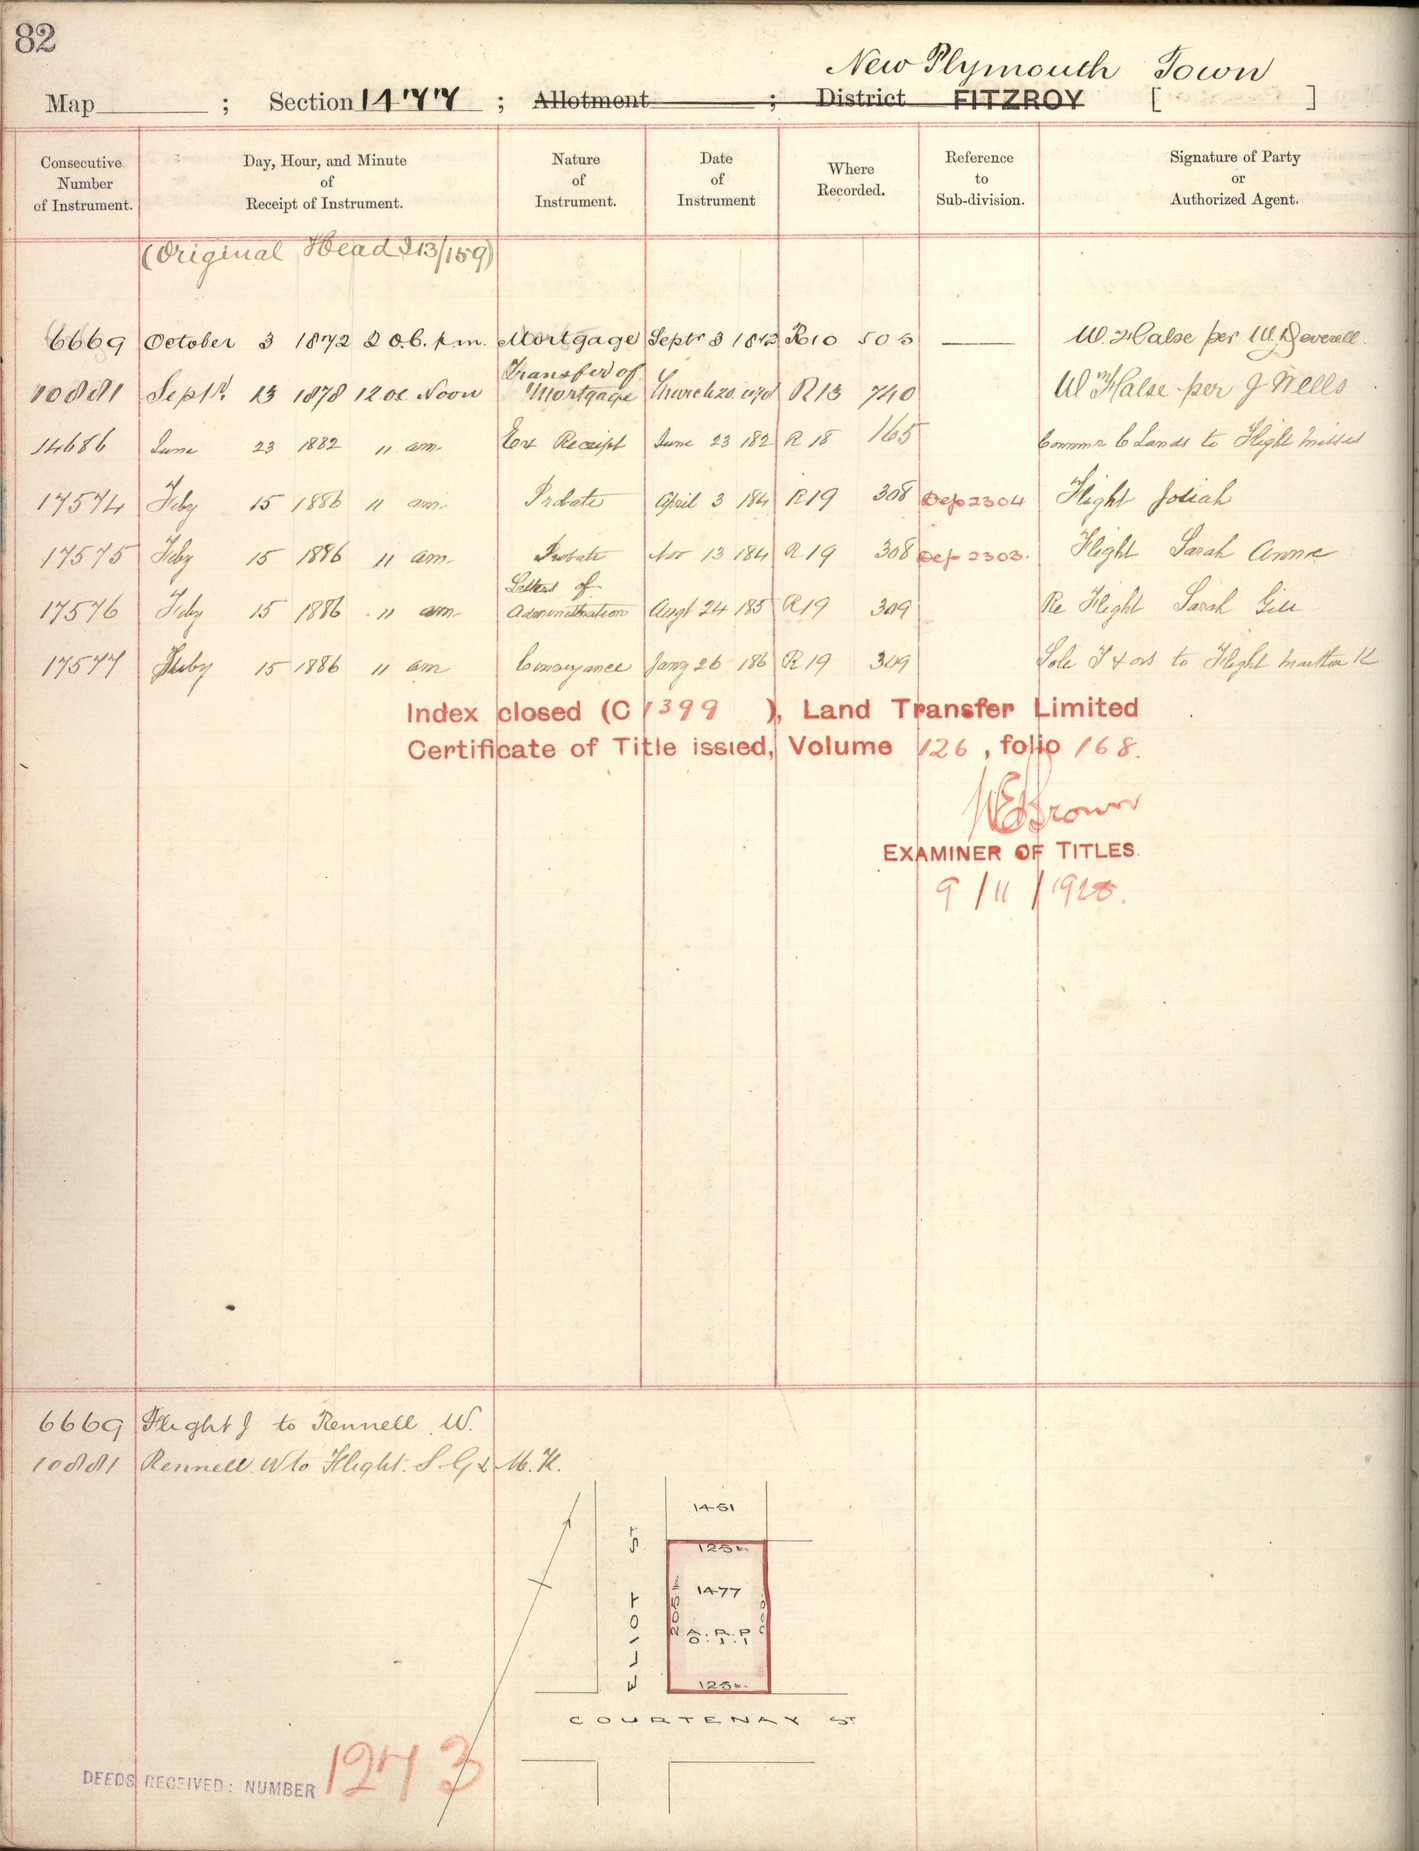 82
New Plymouth Town
Map ; Section 1477 ; Allotment ; District FITZROY [ ]
Consecutive Number of Instrument.
Day, Hour, and Minute of Receipt of Instrument.
Nature of Instrument.
Date of Instrument
Where Recorded.
Reference to Sub-division.
Signature of Party or Authorized Agent.
(Original Head I13/159)
6669 October 3 1872 2 0.6. p.m. Mortgage Septr 3 1872 R10 505 — W. Halse per W. Deverell
10881 Septr 13 1878 12 oc Noon Transfer of Mortgage March 20 R13 740 Wm Halse per J Wells
14686 June 23 1882 11 am Ex Receipt June 23 182 R 18 165 Commr C Lands to Flight Misses
17574 Feby 15 1886 11 am Probate April 3 184 R19 308 Dep 2304 Flight Josiah
17575 Feby 15 1886 11 am Probate Nov 13 184 R 19 308 Dep 2303. Flight Sarah Anne
17576 Feby 15 1886 11 am Letters of Administration Augt 24 185 R19 309 Re Flight Sarah Gill
17577 Feby 15 1886 11 am Conveyance Jany 26 186 R 19 309 Sole to Flight Martha K
Index closed (C 1399 ), Land Transfer Limited
Certificate of Title issued, Volume 126 , folio 168.
WE Brown
EXAMINER OF TITLES.
9 / 11 /
6669 Flight J to Rennell W.
10881 Rennell W to Flight. S. G & M. K.
1451
125
1477
205
A. R. P
0. 1. 1
125
ELIOT ST
COURTENAY ST
DEEDS RECEIVED: NUMBER 1273